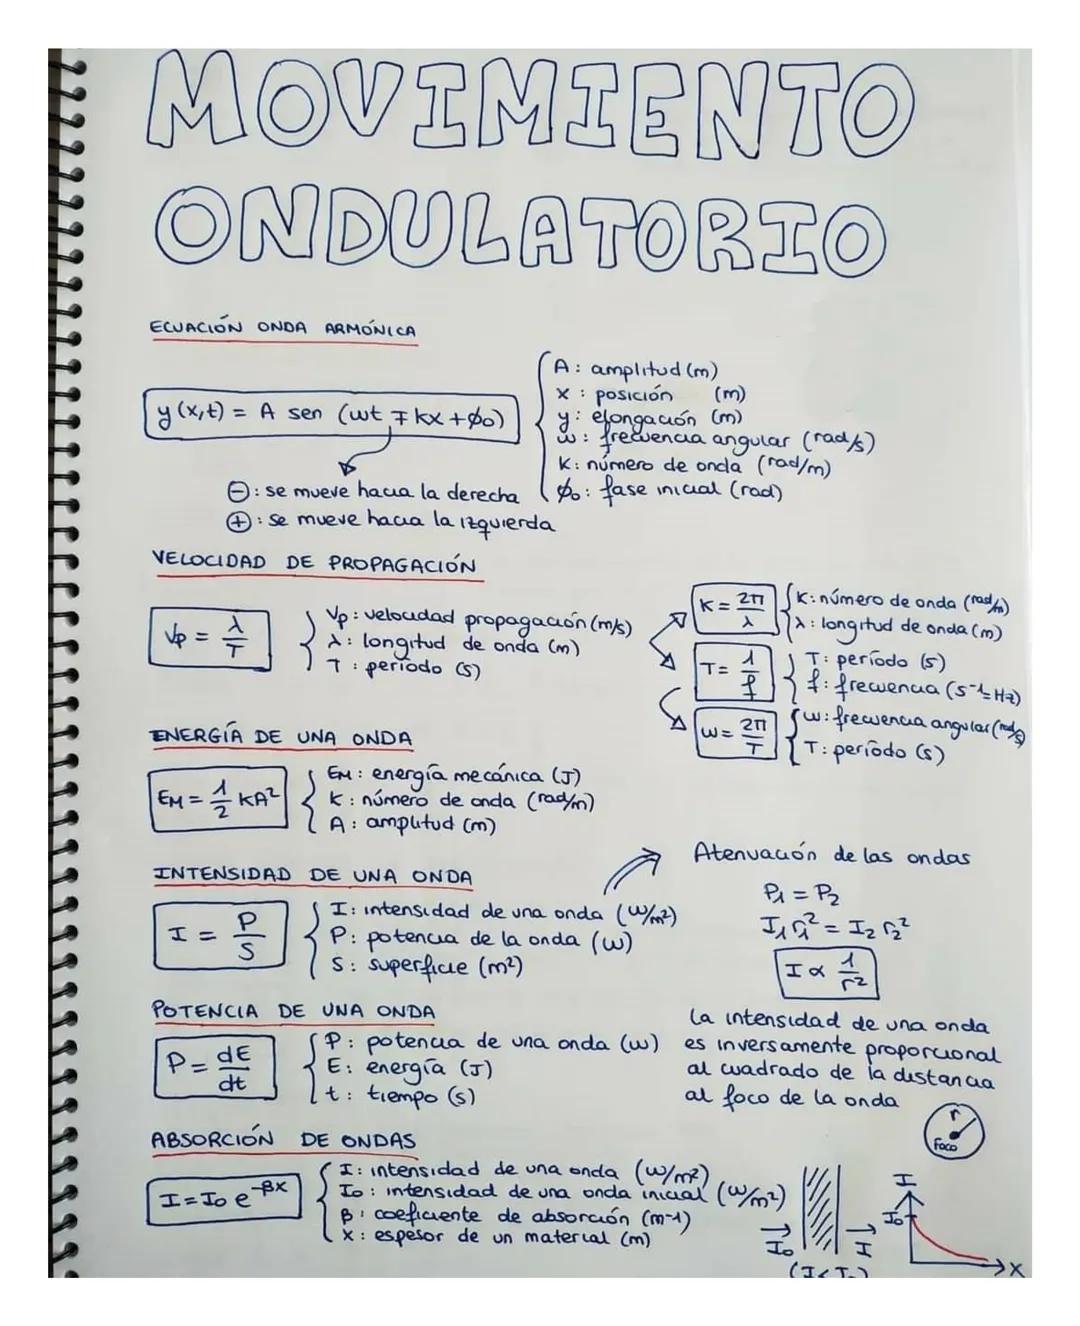 MOVIMIENTO
ONDULATORIO
ECUACIÓN ONDA ARMÓNICA
y(x,t) = A sen (ωt ∓ kx + ϕ₀)
A: amplitud (m)
x: posición (m)
y: elongación (m)
ω: frecuencia angular (rad/s)
K: número de onda (rad/m)
ϕ₀: fase inicial (rad)
⊖: se mueve hacia la derecha
⊕: se mueve hacia la izquierda
VELOCIDAD DE PROPAGACIÓN
Vp = λ/T
Vp: velocidad propagación (m/s)
λ: longitud de onda (m)
T: período (s)
K = 2π/λ
K: número de onda (rad/m)
λ: longitud de onda (m)
T = 1/f
T: período (s)
f: frecuencia (s⁻¹=Hz)
ω = 2π/T
ω: frecuencia angular (rad/s)
T: período (s)
ENERGÍA DE UNA ONDA
EM = 1/2 KA²
EM: energía mecánica (J)
K: número de onda (rad/m)
A: amplitud (m)
INTENSIDAD DE UNA ONDA
I = P/S
I: intensidad de una onda (W/m²)
P: potencia de la onda (W)
S: superficie (m²)
Atenuación de las ondas
P₁ = P₂
I₁r₁² = I₂r₂²
I ∝ 1/r²
La intensidad de una onda
es inversamente proporcional
al cuadrado de la distancia
al foco de la onda
r
Foco
POTENCIA DE UNA ONDA
P = dE/dt
P: potencia de una onda (W)
E: energía (J)
t: tiempo (s)
ABSORCIÓN DE ONDAS
I = I₀ e^-βx
I: intensidad de una onda (W/m²)
I₀: intensidad de una onda inicial (W/m²)
β: coeficiente de absorción (m⁻¹)
x: espesor de un material (m)
I₀
I
(I < I₀)
I
I₀
x